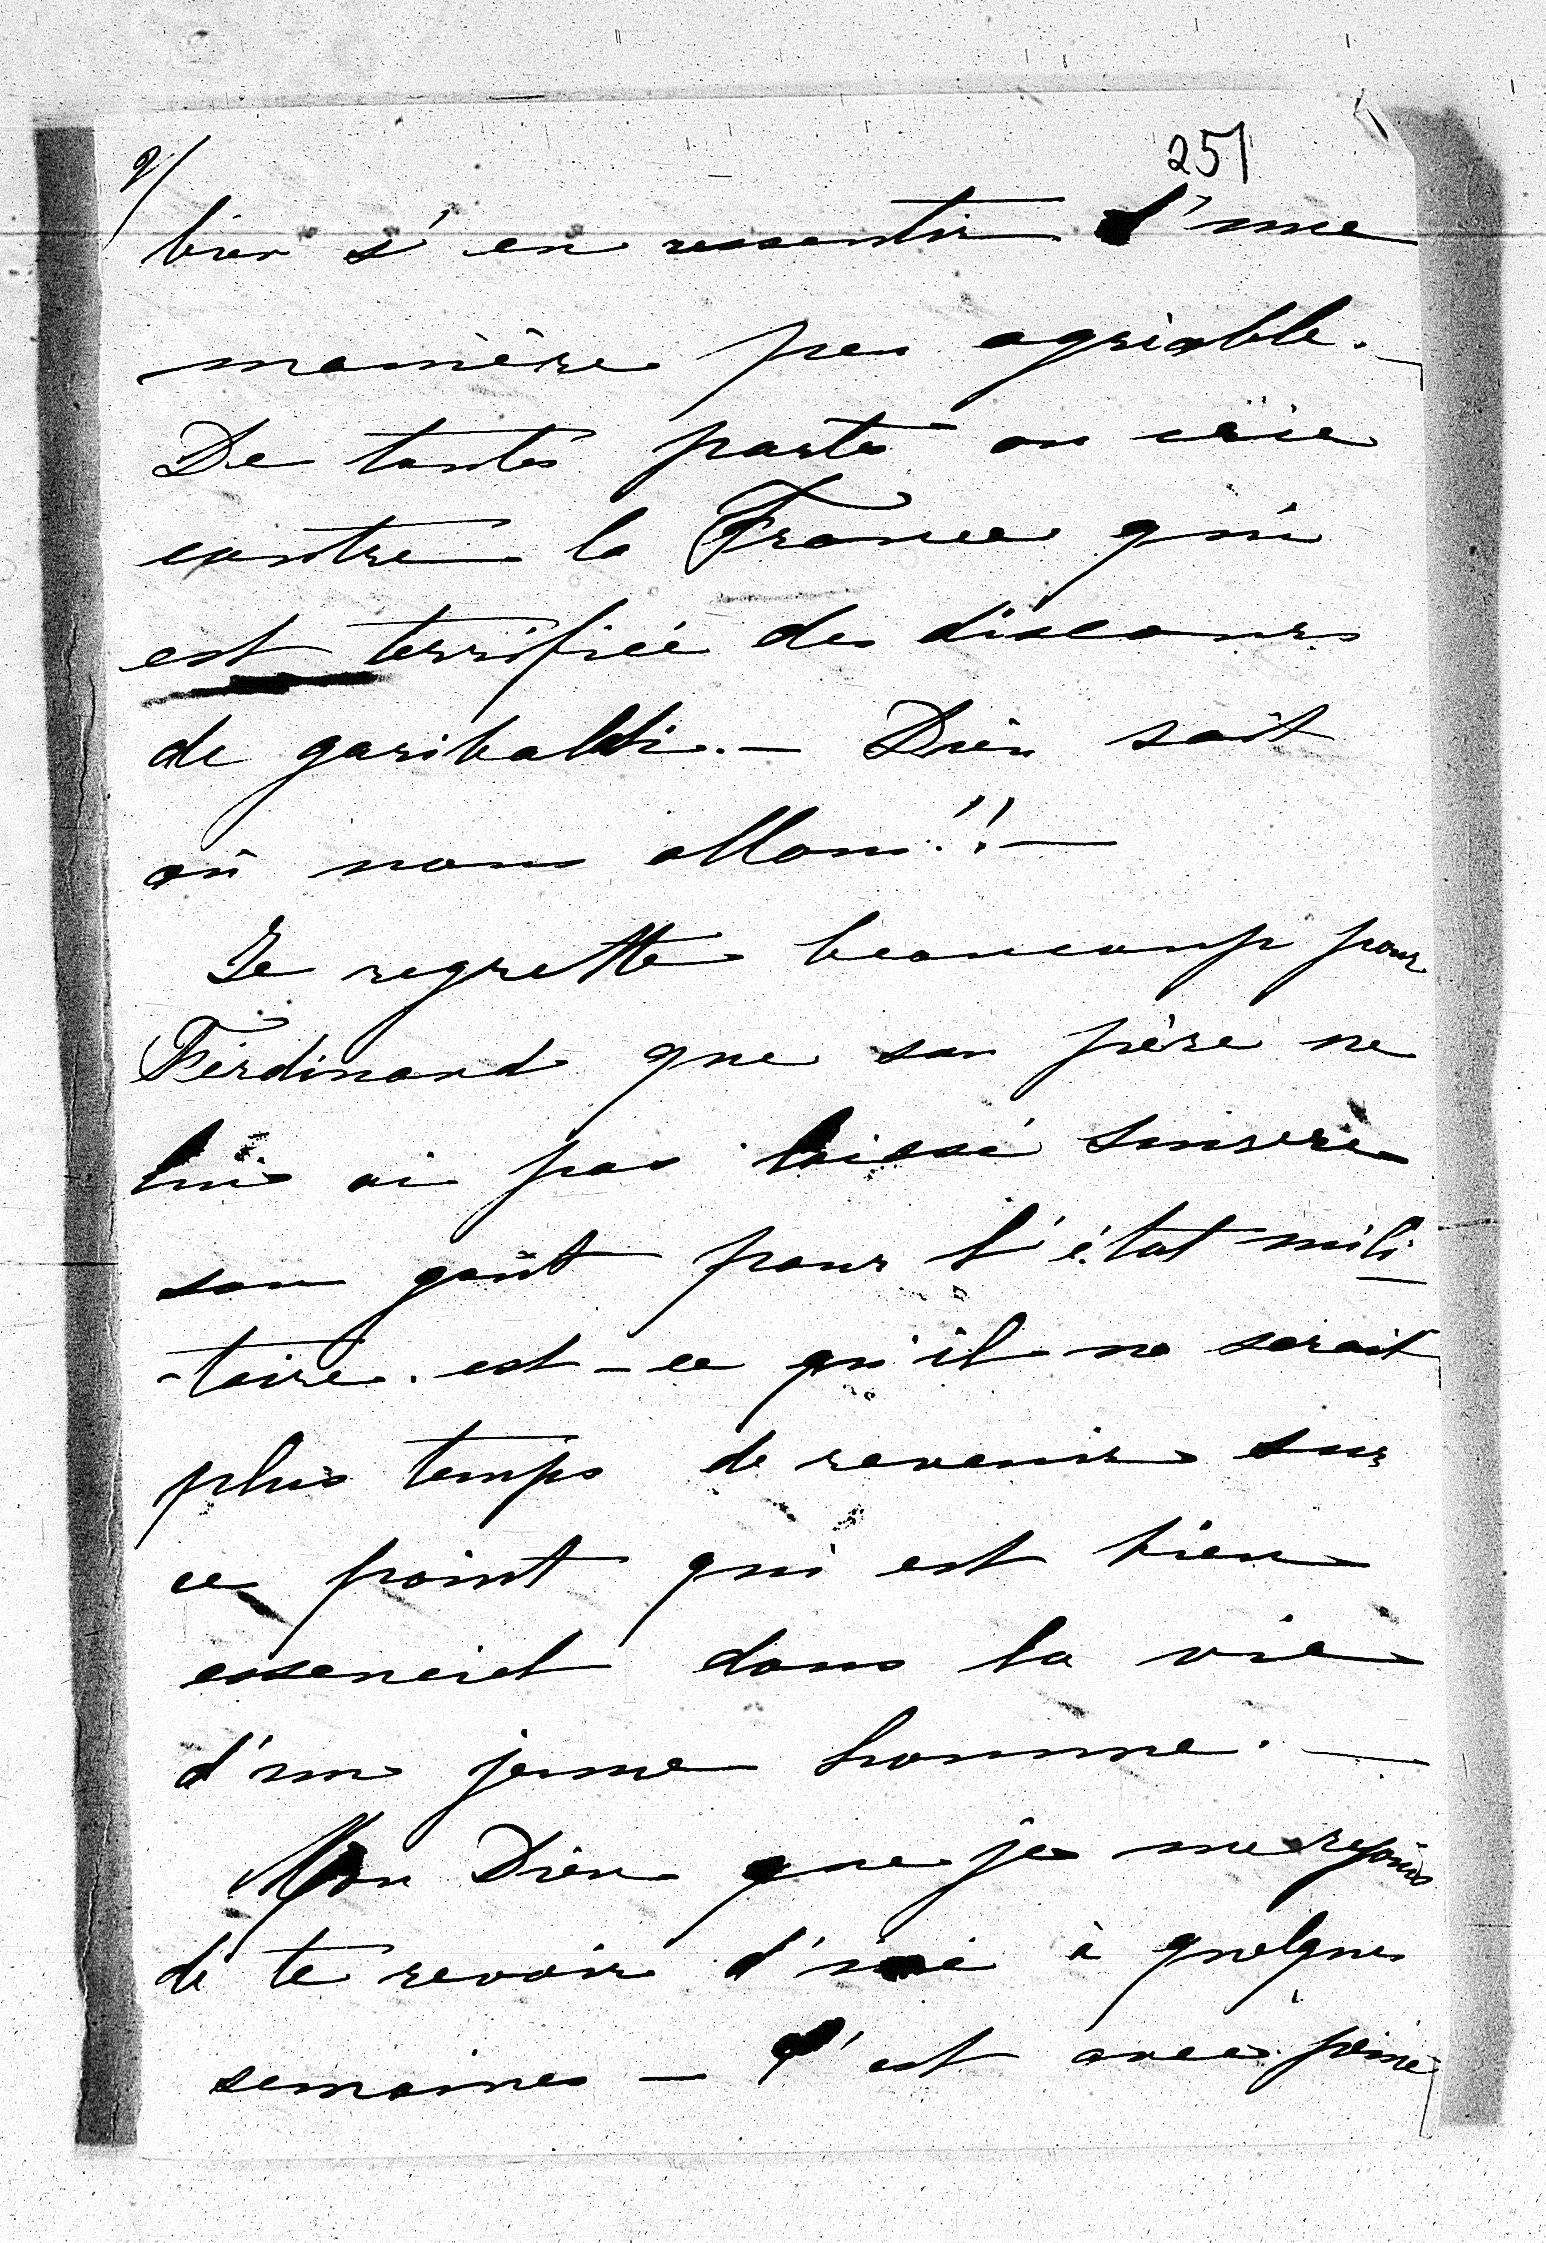 2/
251
bien s'en ressentir d'une
manière peu agréable. —
De toutes parts on crie
contre la France qui
est terrifiée des discours
de garibaldi. — Dieu sait
où nous allons!! —
Je regrette beaucoup pour
Ferdinand que son père ne
lui ai pas laissé suivre
son goût pour l'état mili-
-taire. est-ce qu'il ne serait
plus temps de revenir sur
ce point qui est bien
essenciel dans la vie
d'un jeune homme. —
Mon Dieu que je me rejouis
de te revoir d'ici à quelques
semaines — C'est avec peine